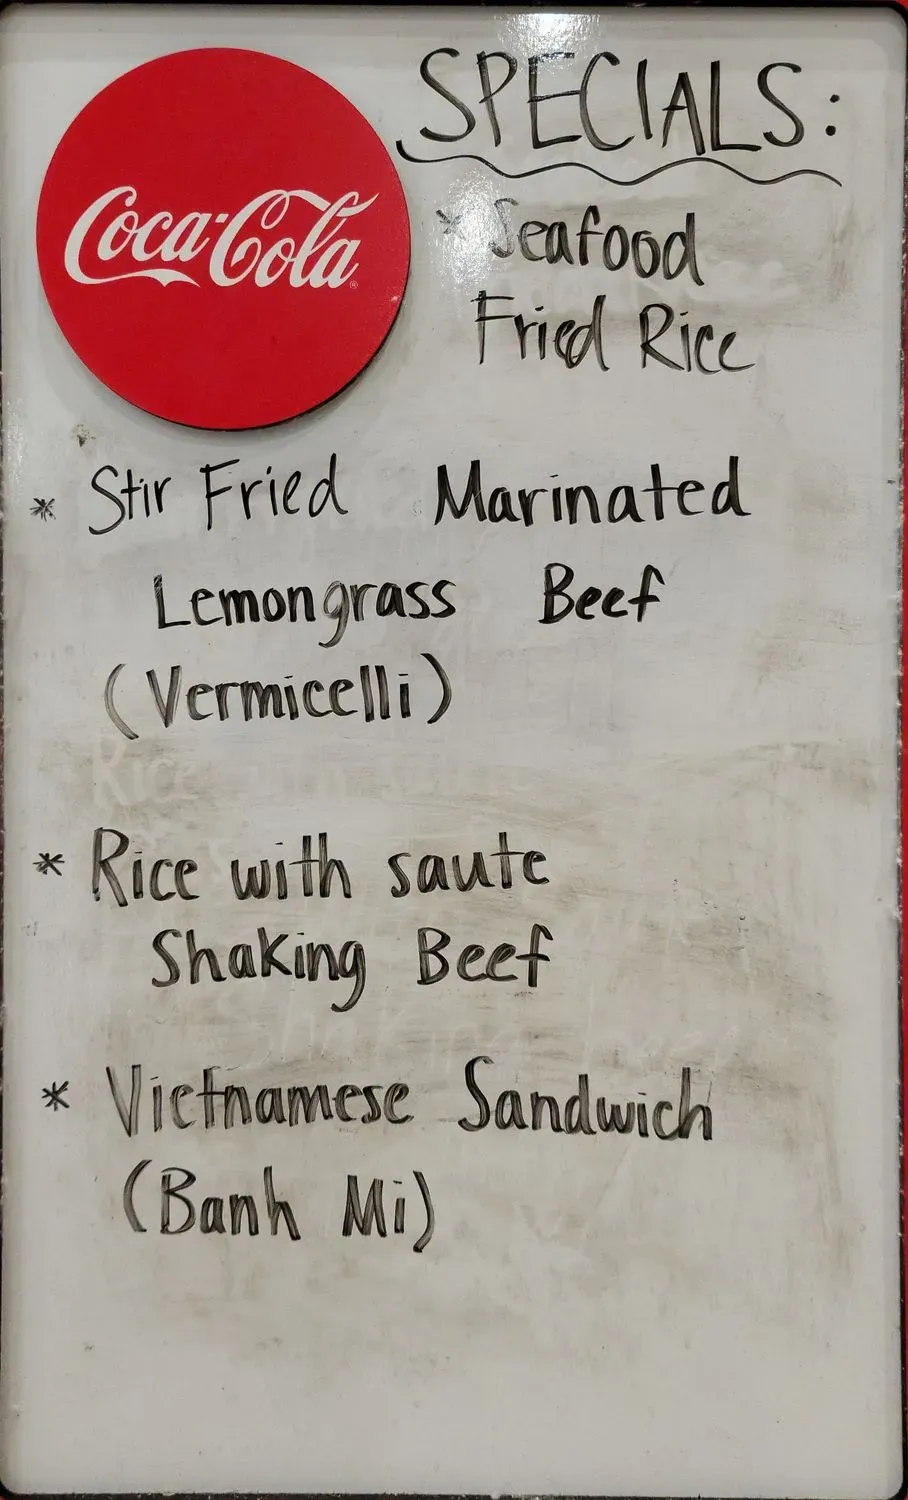 Coca-Cola
SPECIALS:
* Seafood
Fried Rice
* Stir Fried Marinated
Lemongrass Beef
(Vermicelli)
* Rice with saute
Shaking Beef
* Vietnamese Sandwich
(Banh Mi)